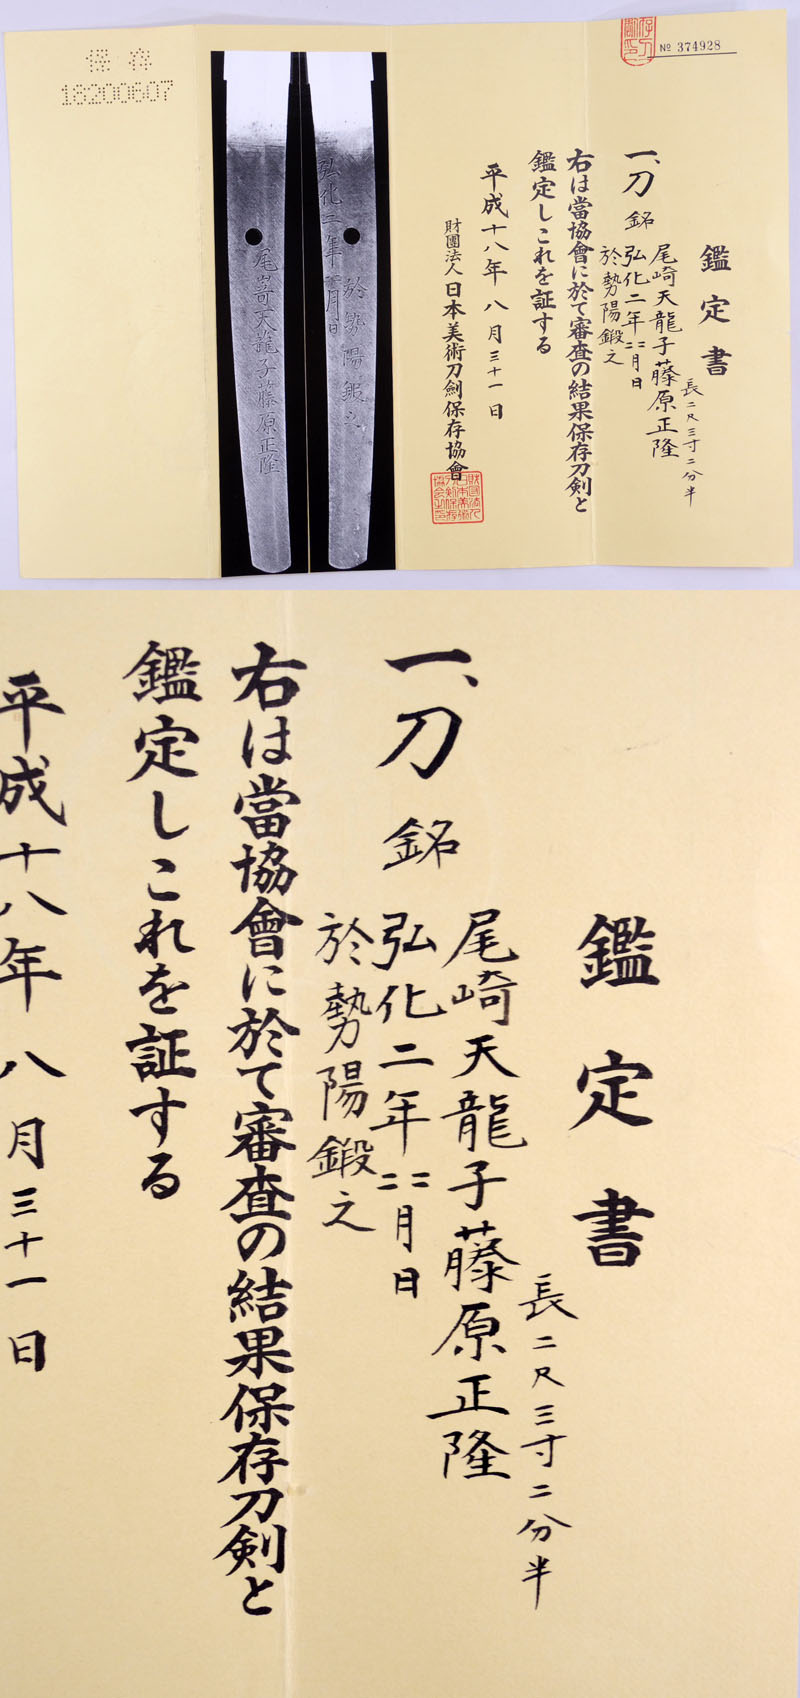 保存
18200607
弘化二年二二月日
於勢陽鍛之
尾崎天龍子藤原正隆
№ 374928
鑑定書
長二尺三寸二分半
一、刀 銘
尾崎天龍子藤原正隆
弘化二年二二月日
於勢陽鍛之
右は當協會に於て審査の結果保存刀剣と
鑑定しこれを証する
平成十八年八月三十一日
財團法人日本美術刀劍保存協會
鑑定書
長二尺三寸二分半
一、刀 銘
尾崎天龍子藤原正隆
弘化二年二二月日
於勢陽鍛之
右は當協會に於て審査の結果保存刀剣と
鑑定しこれを証する
平成十八年八月三十一日